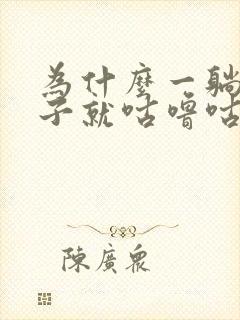 為什麼一躺
子就咕嚕咕
陳廣眾